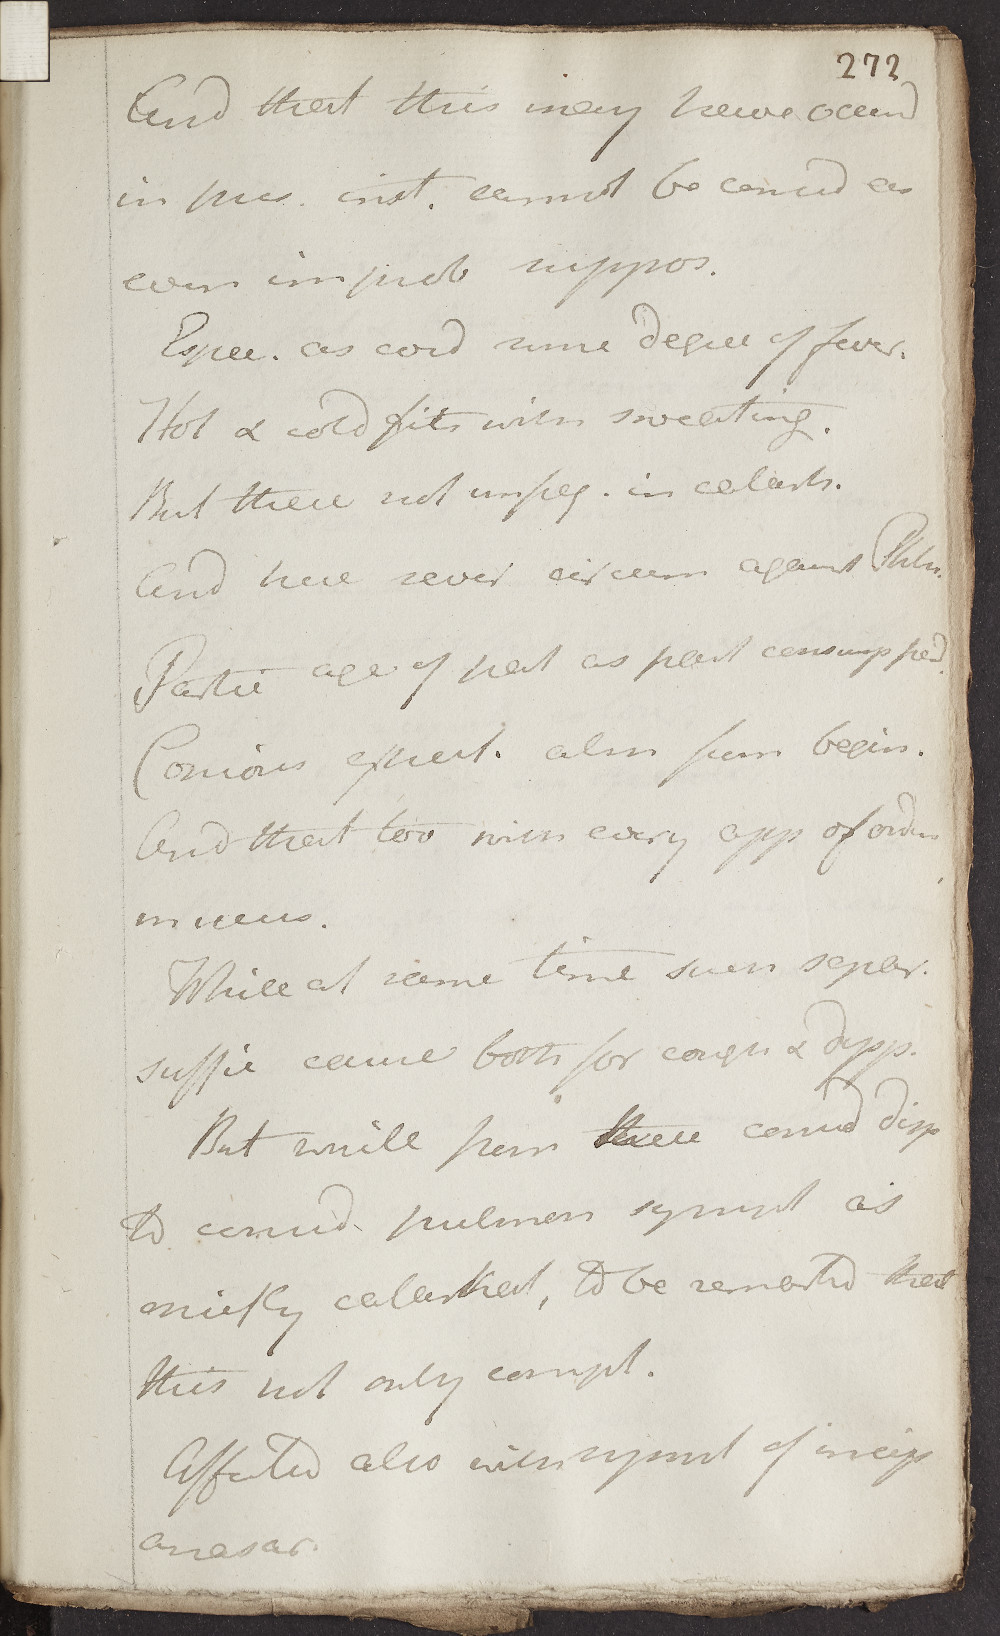 272
And that this may have occurd
in pres. inst. cannot be consid as
even improb suppos.
Espec. as cord some degree of fever.
Hot & cold fits with sweating.
But these not unfreq. in catarh.
And here sever circum against Phth.
Partic age of pat as past
Copious expect. alm from begin.
And that too with every app of ordin
mucus.
While at same time such separ.
suffic cause both for cough & dysp.
But while from these consid disp
to consid. pulmon sympt as
chiefly catarrhal, to be remarkd that
this not only compl.
Affected also with sympt of incip
anasar.